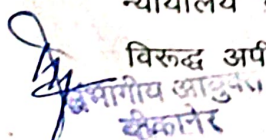 न्यायालय
विरूद्ध अर्प
संभागीय आयुक्त
बीकानेर